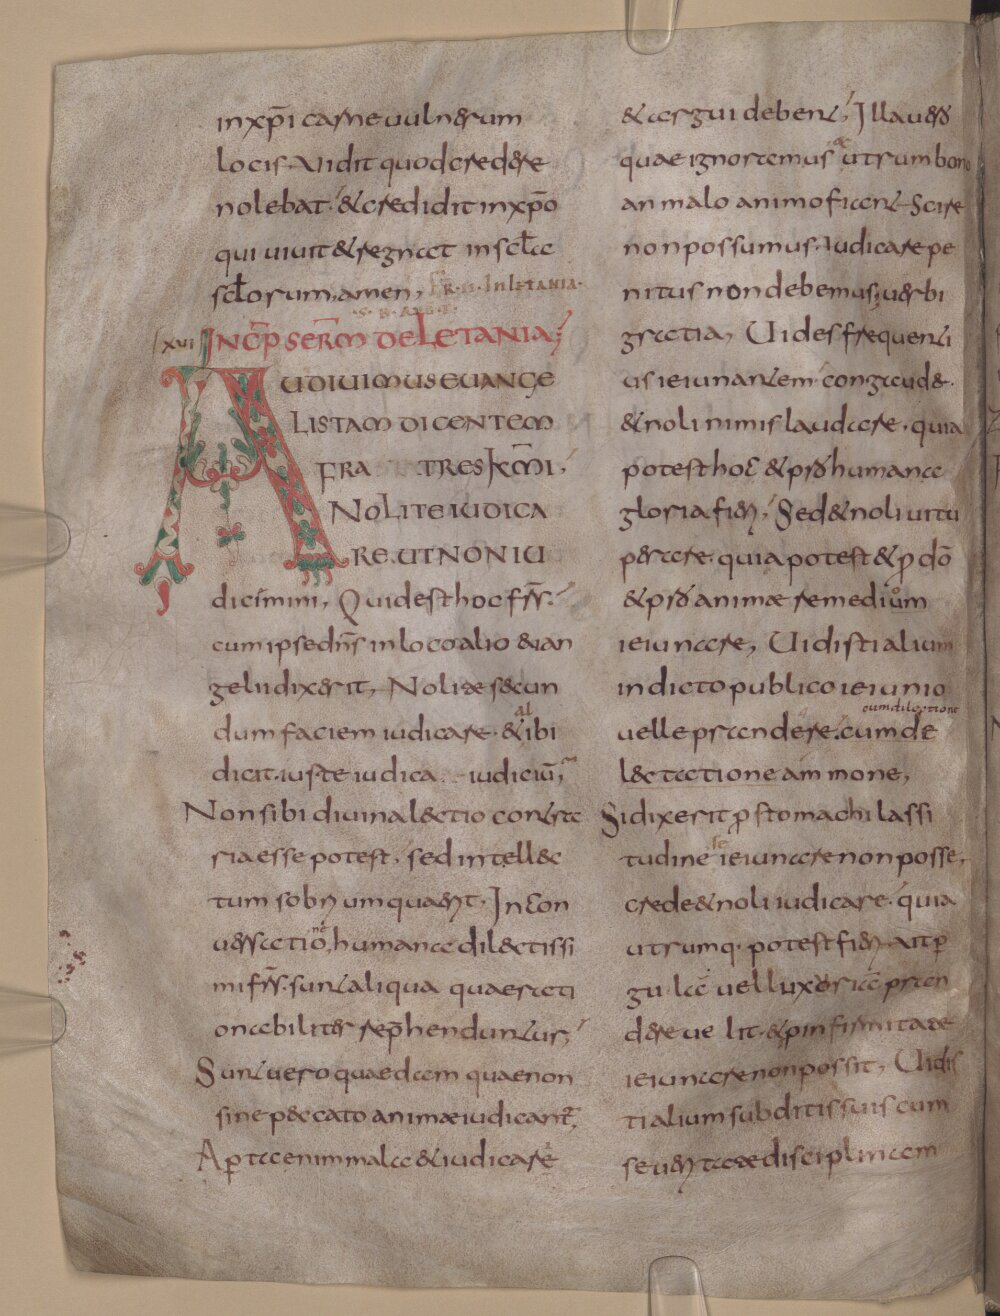 in xp̄i carne uulnerum
locis. Vidit quod credere
nolebat. & credidit in xp̄o
qui uiuit & regnat in scl̄a
scl̄orum, amen,
FR. II. IN LETANIA.
xvi INCP̄ SERM̄ DE LETANIA;
AUDIVIMUS EVANGE
LISTAM DICENTEM
FRATRES K̄MI,
NOLITE IUDICA
RE. UT NON IU
dicimini, Quid est hoc fr̄s.
cum ipse dn̄s in loco alio & ian
gelii dixerit, Nolite secun
dum faciem iudicare. & ^al ibi
dicit. iuste iudica iudiciū,
Non sibi diuina lectio contra
ria esse potest, sed intellec
tum sobrium quaerit. In con
uersatiōe, humana dilectissi
mi fr̄s. sunt aliqua quae rati
onabiliter rep̄henduntur,
Sunt uero quaedam quae non
sine peccato animae iudicant,
Aperta enim mala & iudicare
& argui debent, Illa uero
quae ignoramus utrum bono
an malo animo ficent. Scire
non possumus. Iudicare pe
nitus non debemus; uerbi
gratia, Uides frequenti
us ieiunantem. congaude.
& noli nimis laudare, quia
potest hoc & p̄ter humana
gloria fieri, Sed & noli uitu
perare. quia potest & p̱ dō
& p̄ter animae remedium
ieiunare, Uidisti alium
indicto publico ieiunio
cum dilectione
uelle prandere. cum de
lectatione ammone,
Si dixerit p̱ stomachi lassi
tudine ^se ieiunare non posse,
crede & noli iudicare. quia
utrumq. potest fieri. Aut p̱
gula uel luxoria pran
dere uelit. & p̱ infirmitate
ieiunare non possit, Uidis
ti alium subditis suis cum
seueritate disciplinam